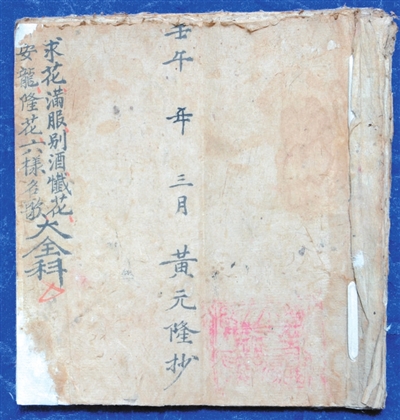 壬午年三月黃元隆抄
求花滿服别酒懺花
安龍隆花六樣各
大全科